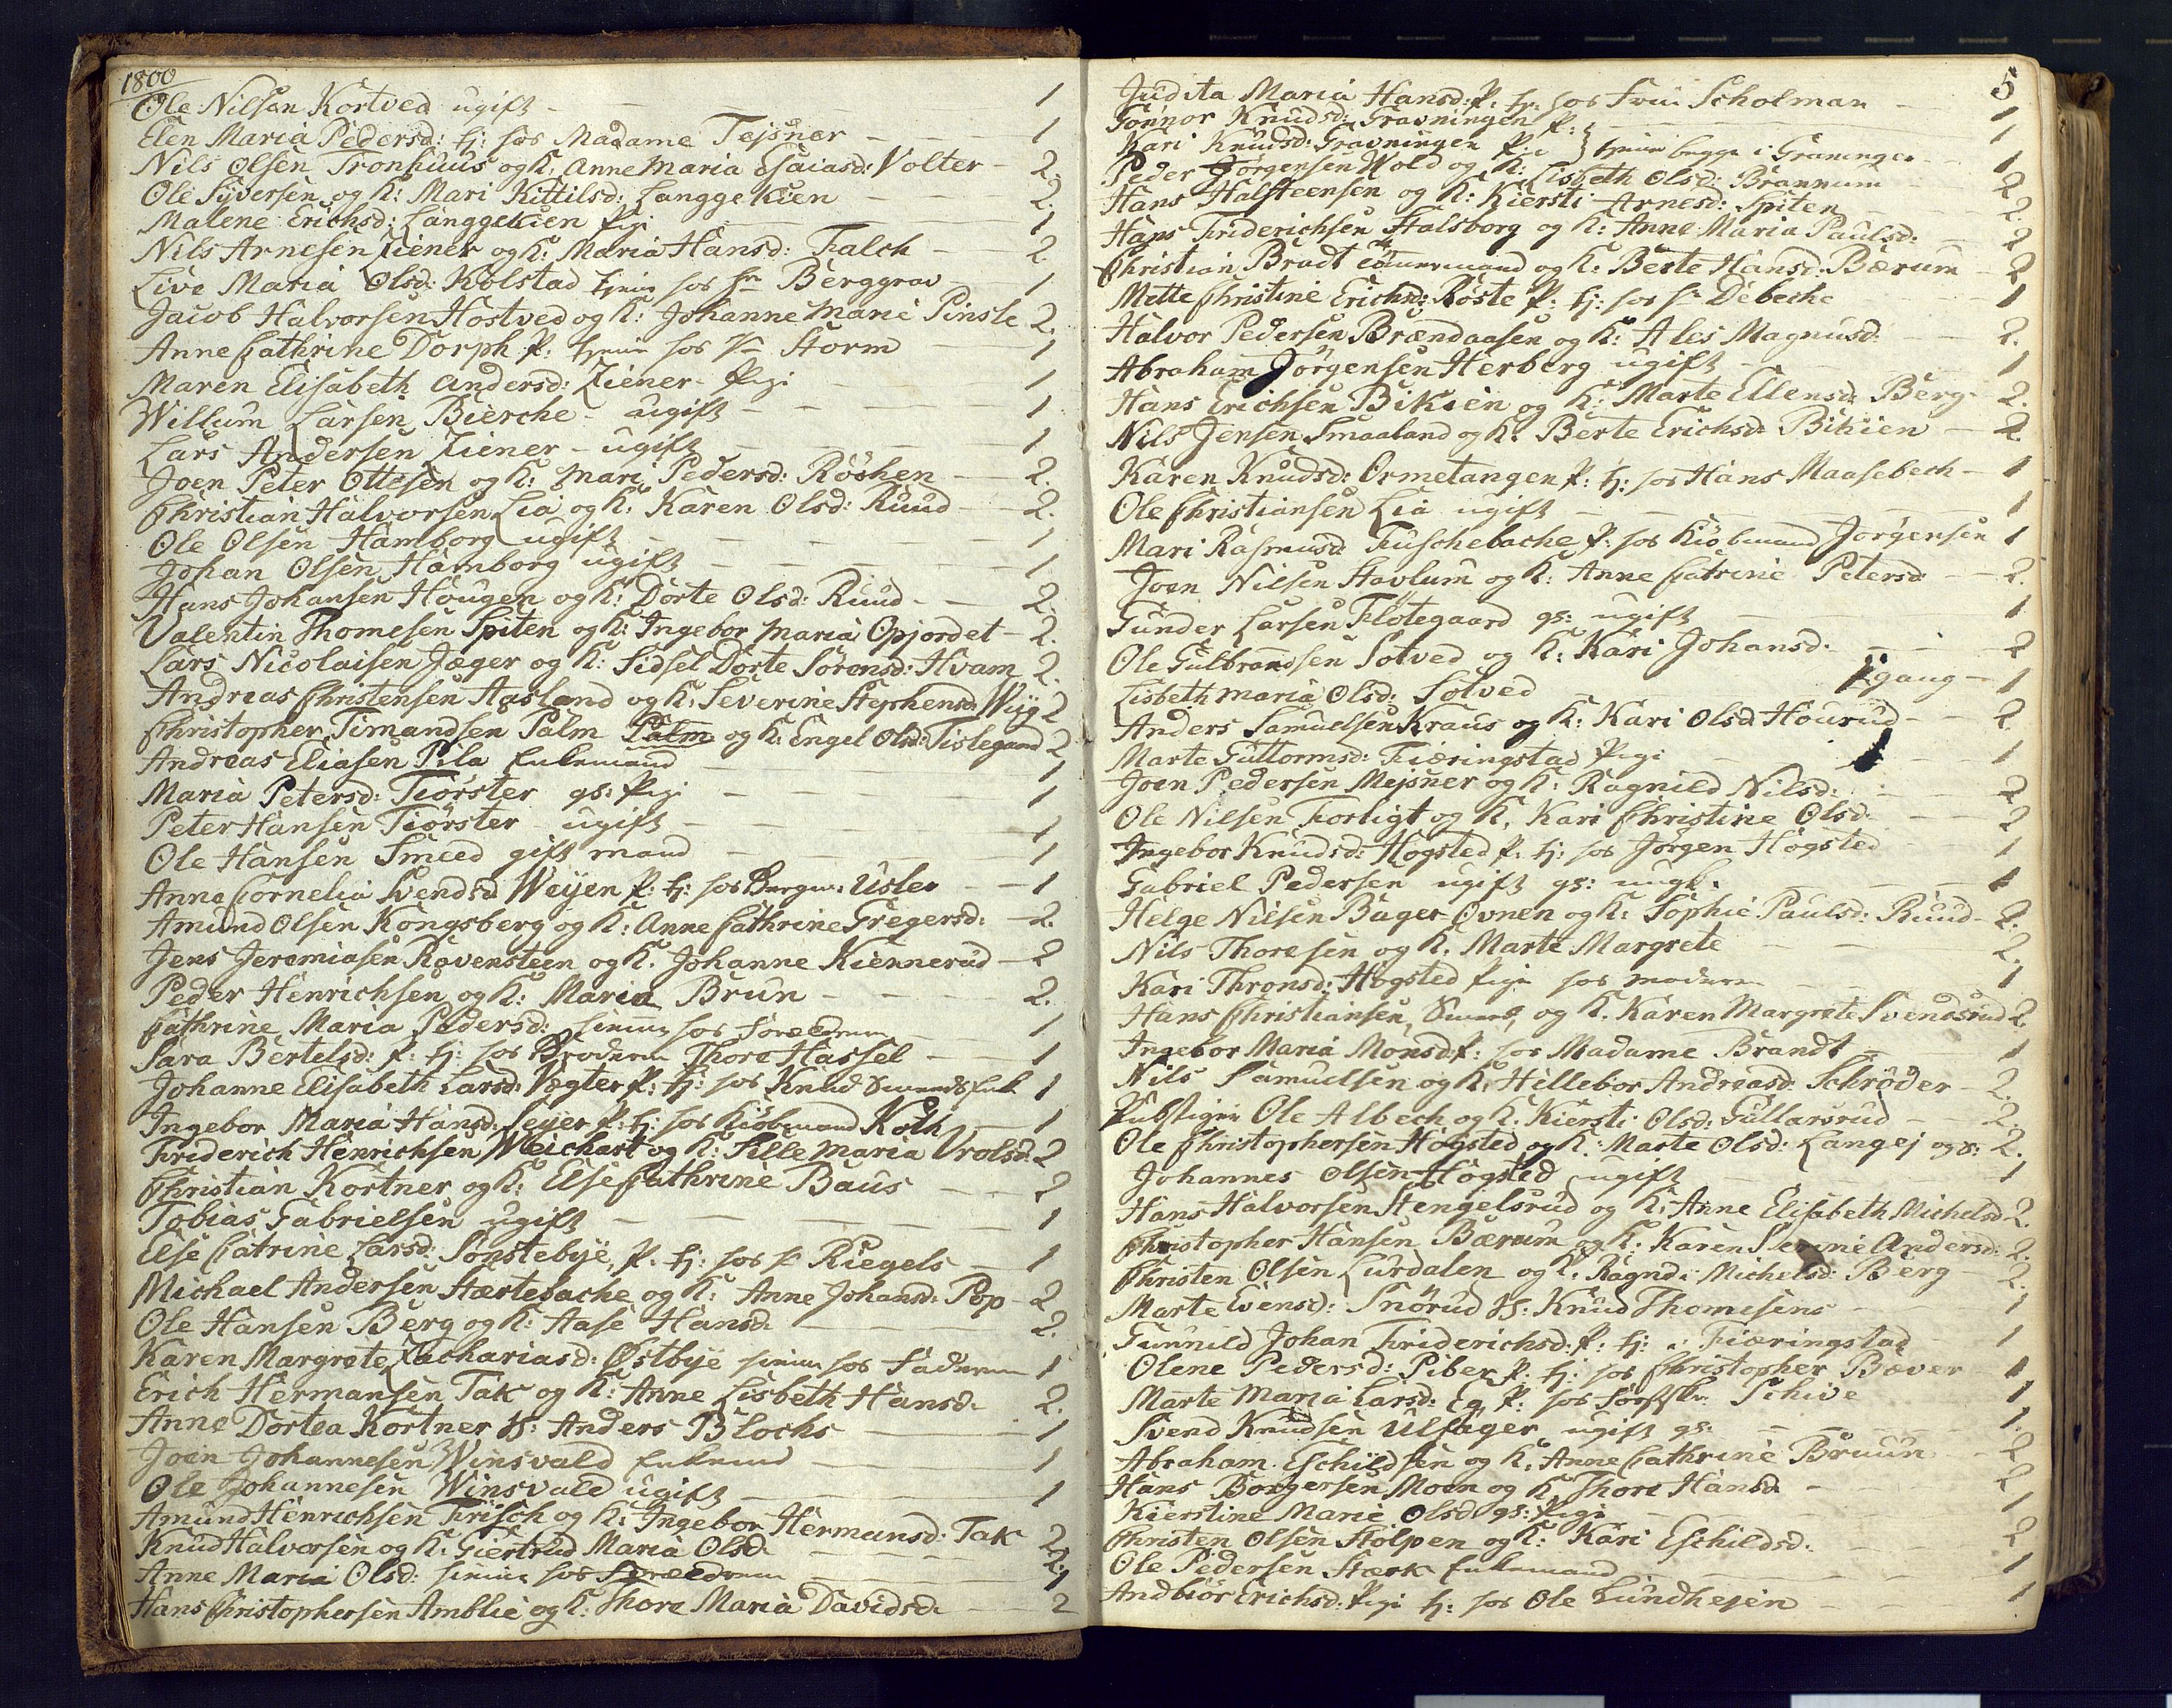 1800
Ole Nilsen Kortved ugift - 1
Elen Maria Pedersd: tj: hos Madame Tejsner - 1
Nils Olsen Tronhuus og K: Anne Maria Esaiasd: Volter - 2.
Ole Syversen og K: Mari Kittilsd: Langgekien - 2.
Malene Erichsd: Langgekien Pigi - 1
Nils Arnesen Ziener og K: Maria Hansd: Falch - 2.
Live Maria Olsd: Kolstad tjener hos Hr Berggrav - 1
Jacob Halvorsen Hostved og K: Johanne Marie Pinsle 2.
Anne Cathrine Dorph P: tjener hos Hr Storm - 1
Maren Elisabeth Andersd: Ziener - Pigi - 1
Willum Larsen Bierche - ugift - 1
Lars Andersen Ziener - ugift - 1
Joen Peter Ottesen og K: Mari Pedersd: Röshen - 2.
Christian Halvorsen Lia og K: Karen Olsd: Ruud - 2.
Ole Olsen Hamborg ugift - 1
Johan Olsen Hamborg ugift - 1
Hans Johansen Hougen og K: Dorte Olsd: Ruud - 2.
Valentin Thomesen Spiten og K: Ingebor Maria Opjordet - 2.
Lars Nicolaisen Jæger og K: Sidsel Dorte Sörensd: Hvam 2.
Andreas Christensen Aasland og K: Severine Stephensd: Wiig 2
Christopher Timandsen Palm Palm og K: Engel Olsd: Tislegaard 2
Andreas Eliasen Pila Enkemand - 1
Maria Petersd: Tiörster gs: Pigi - 1
Peter Hansen Tiörster - ugift - 1
Ole Hansen Smeed gift mand - 1
Anne Cornelia Svendsd Weyen P: tj: hos Bergm: Usler - 1
Amund Olsen Kongsberg og K: Anne Cathrine Gregersd: - 2.
Jens Jeremiasen Ravensteen og K: Johanne Kiennerud - 2
Peder Henrichsen og K: Maria Brun - 2.
Cathrine Maria Pedersd: hos Forældrene 1
Sara Bertelsd: P: tj: hos Broderen Thore Hassel - 1
Johanne Elisabeth Larsd: Vogter P: tj: hos Knud Smeds Enk 1
Ingebor Maria Hansd: Seyer P: tj: hos Kiöbmand Koth - 1
Friderich Henrichsen Weichart og K: Sille Maria Vrolsd: 2
Christian Kortner og K: Else Cathrine Baus - 2
Tobias Gabrielsen ugift - 1
Else Catrine Larsd: Sönstebye, P: tj: hos Hr Riegels - 1
Michael Andersen Stærtebache og K: Anne Johansd: Pop - 2
Ole Hansen Berg og K: Aase Hansd: 2.
Karen Margrete Zachariasd: Østbye hos Faderen 1
Erich Hermansen Tak og K: Anne Lisbeth Hansd: 2.
Anne Dortea Kortner H: Anders Blochs - 1
Joen Johannesen Winsvald Enkemd - 1
Ole Johannesen Winsvald ugift - 1
Amund Henrichsen Frisch og K: Ingebor Hermansd: Tak 2
Knud Halvorsen og K: Giertrud Maria Olsd: 2.
Anne Maria Olsd: hos Forældrene 1
Hans Christophersen Amblie og K: Thore Maria Davidsd: 2
5
Judita Maria Hansd: P: tj: hos Frue Scholman - 1
Gönnor Knudsd: Gravningen P: 1
Kari Knudsd: Gravningen Pi: tjener begge i Gravningen - 1
Peder Jörgensen Wold og K: Lisbeth Olsd: Brannum 2
Hans Halsteensen og K: Kiersti Arnesd: Spiten 2.
Hans Friderichsen Stalsborg og K: Anne Maria Paulsd: 2
Christian Bradt Tömmermand og K: Berte Hansd: Bærum - 2
Mette Christine Erichsd: Röste P: tj: hos Hr Debeche - 1
Halvor Pedersen Brændaasen og K: Ales Magnusd: 2.
Abraham Jörgensen Herberg ugift - 1
Hans Erichsen Bikien og K: Marte Ellensd: Berg - 2.
Nils Jensen Smaaland og K: Berte Erichsd: Bikien - 2.
Karen Knudsd: Ormetangen P: tj: hos Hans Maasebech - 1
Ole Christiansen Lia ugift - 1
Mari Rasmusd: Fuschebache P: hos Kiöbmand Jörgensen 1
Joen Nilsen Stavlum og K: Anne Catrine Petersd: - 2.
Gunder Larsen Flötegaard gs: ugift - 1
Ole Gulbrandsen Solved og K: Kari Johansd: - 2
Lisbeth Maria Olsd: Solved gang - 1
Anders Samuelsen Kraus og K: Kari Olsd: Hourud - 2
Marte Guttormsd: Fiæringstad Pigi - 1
Joen Pedersen Mejsner og K: Ragnild Nilsd: 2
Ole Nilsen Forligt og K. Kari Christine Olsd: 2
Ingebor Knudsd: Högsted P: tj: hos Jörgen Högsted 1
Gabriel Pedersen ugift gs: ungk: 1
Helge Nilsen Bager Ovnen og K: Sophie Paulsd: Ruud - 2.
Nils Thoresen og K. Marte Margrete 2.
Kari Thronsd: Högsted Pige hos moderen 1
Hans Christiansen, Smed, og K. Karen Margrete Svendsrud 2
Ingebor Maria Monsd: P: hos Madame Brandt - 1
Nils Samuelsen og K: Hillebor Andreasd: Schröder - 2.
Ole Albech og K. Kiersti Olsd: Gullarsrud - 2.
Ole Christophersen Högsted og K: Marte Olsd: Langej og s: 2.
Johannes Olsen Högsted ugift 1
Hans Halvorsen Stengelsrud og K: Anne Elisabeth Michelsd: 2.
Christopher Hansen Bærum og K: Karen Serine Andersd: 2.
Christen Olsen Lurdalen og K. Ragndi Michelsd: Berg 2.
Marte Evensd: Snörud H: Knud Thomesens 1
Gunnild Johan Friderichsd: P: tj: i Fiæringstad 1
Olene Pedersd: Piber P: tj: hos Christopher Bæver 1
Marte Maria Larsd: Eg P: hos Schive 1
Svend Knudsen Ulfager ugift gs: 1.
Abraham Eschildsen og K. Anne Cathrine Bruun 2
Hans Borgersen Moen og K Thore Hansd: 2
Kierstine Marie Olsd gs: Pigi 1
Christen Olsen Stolpen og K: Kari Eschildsd: 2
Ole Pedersen Stærk Enkemand 1
Andbiör Erichsd: Pigi tj: hos Ole Lundhejen 1